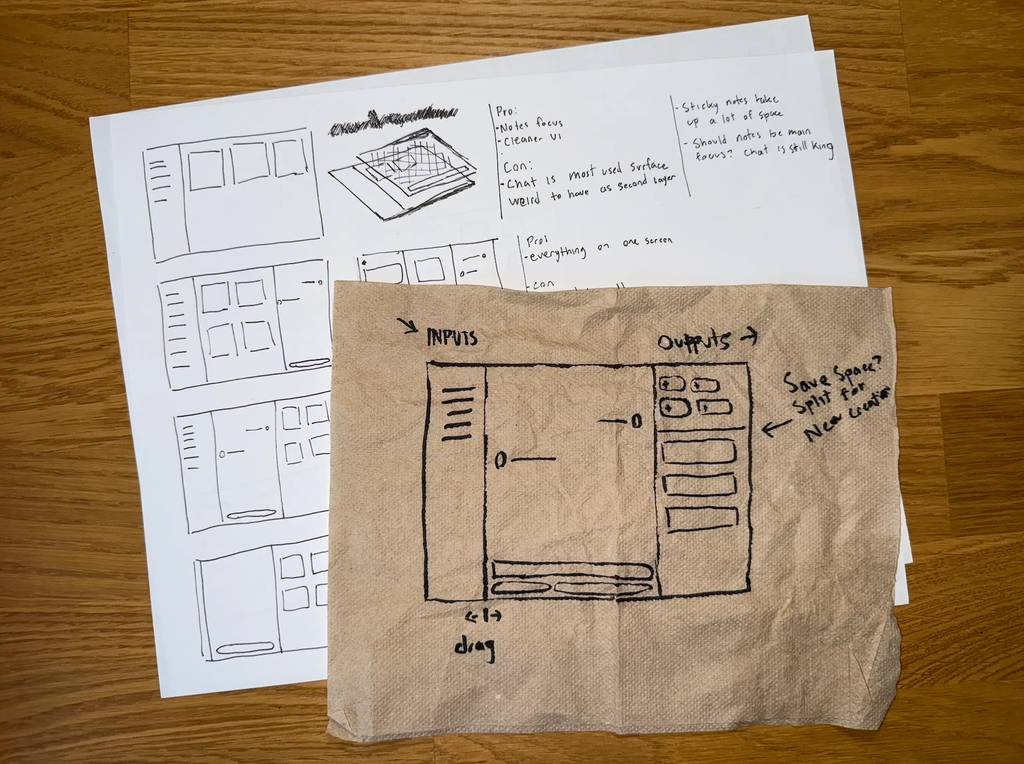 Pro:
-Notes focus
-Cleaner UI
Con:
-Chat is most used surface
weird to have as second layer
-Sticky notes take
up a lot of space
-Should notes be main
focus? Chat is still king
Pro:
-everything on one screen
-con
INPUTS
OUTPUTS →
Save Space?
Split for
New Creation
drag